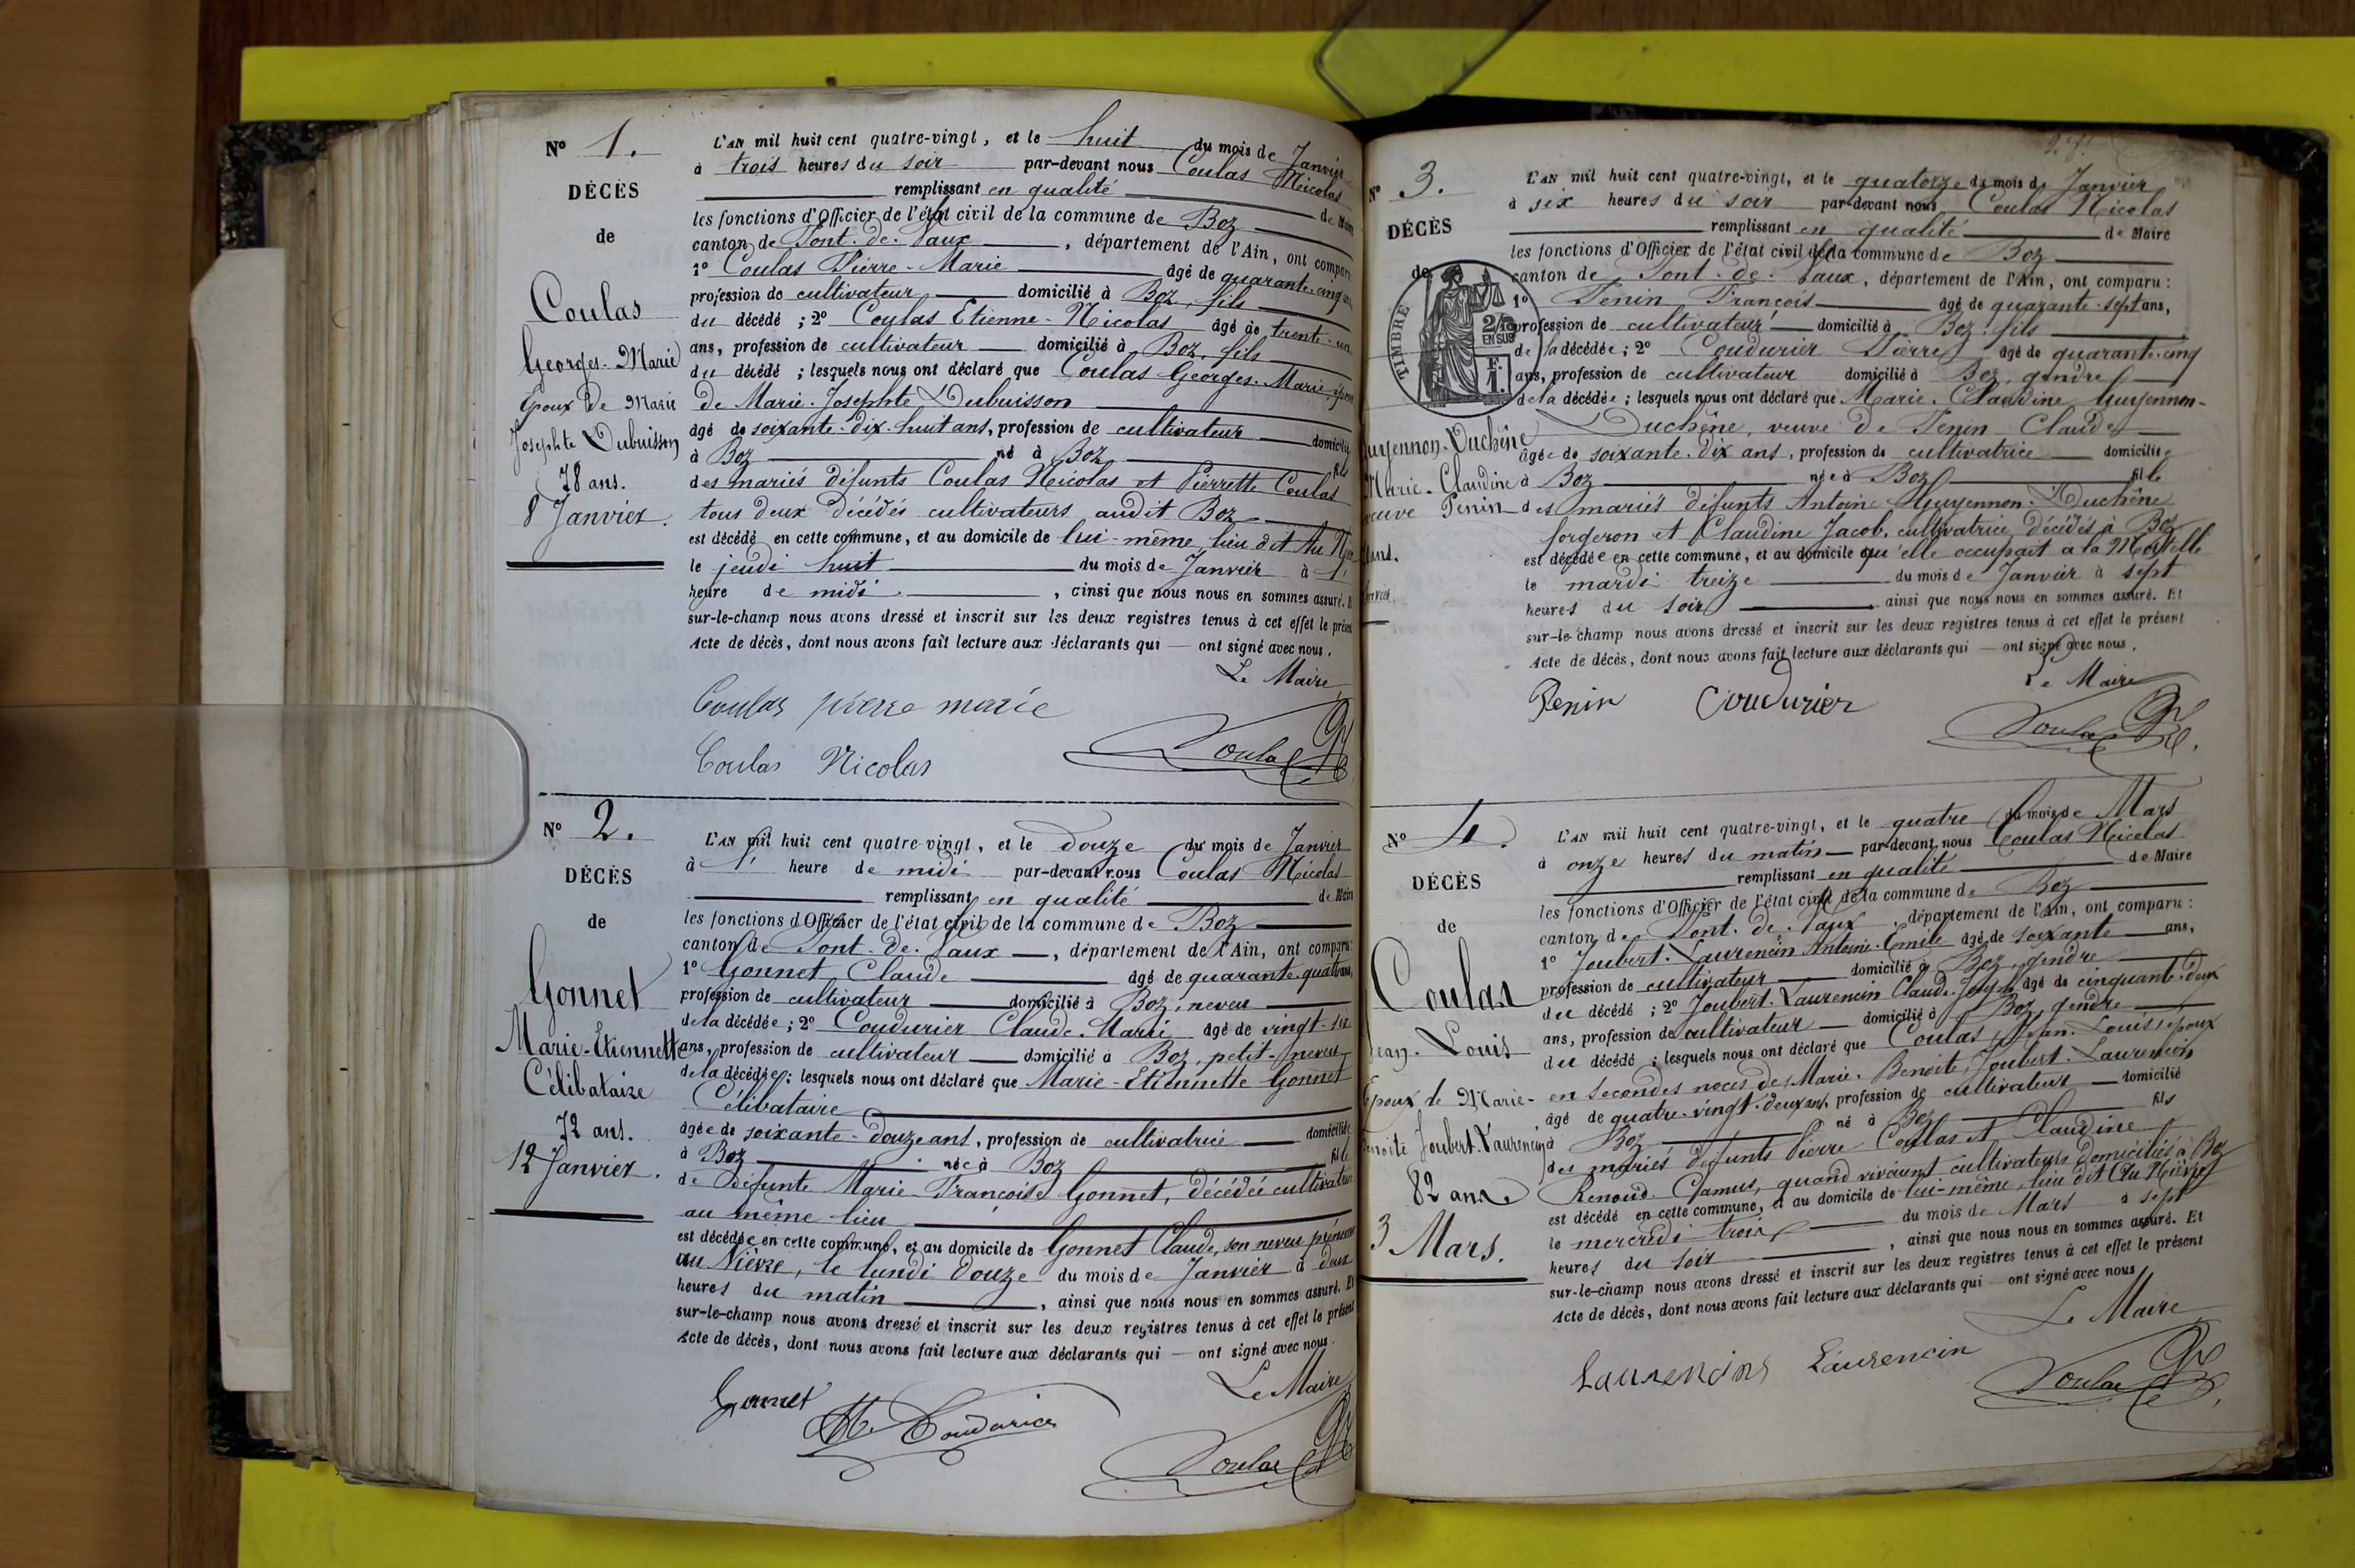 Nº 1.
DÉCÈS
de
Coulas
Georges-Marie
Epoux de Marie
Josephte Dubuisson
78 ans.
8 Janvier.
L'AN mil huit cent quatre-vingt, et le huit du mois de Janvier
à trois heures du soir par-devant nous Coulas Nicolas
remplissant en qualité de Maire
les fonctions d'Officier de l'état civil de la commune de Boz
canton de Pont-de-Vaux, département de l'Ain, ont comparu
1º Coulas Pierre-Marie âgé de quarante-cinq
profession de cultivateur domicilié à Boz, fils
du décédé ; 2º Coulas Etienne-Nicolas âgé de trente-un
ans, profession de cultivateur domicilié à Boz, fils
du décédé ; lesquels nous ont déclaré que Coulas Georges-Marie, époux
de Marie-Josephte Dubuisson
âgé de soixante-dix-huit ans, profession de cultivateur domicilié
à Boz né à Boz fils
des mariés défunts Coulas Nicolas et Pierrette Coulas
tous deux décédés cultivateurs audit Boz
est décédé en cette commune, et au domicile de lui-même, lieu dit Au
le jeudi huit du mois de Janvier à 1
heure de midi, ainsi que nous nous en sommes assuré. Et
sur-le-champ nous avons dressé et inscrit sur les deux registres tenus à cet effet le présent
Acte de décès, dont nous avons fait lecture aux déclarants qui — ont signé avec nous.
Le Maire
Coulas pierre marie
Coulas Nicolas
Coulas
Nº 2.
DÉCÈS
de
Gonnet
Marie-Etiennette
Célibataire
72 ans.
12 Janvier.
L'AN mil huit cent quatre-vingt, et le douze du mois de Janvier
à 1 heure de midi par-devant nous Coulas Nicolas
remplissant en qualité de Maire
les fonctions d'Officier de l'état civil de la commune de Boz
canton de Pont-de-Vaux, département de l'Ain, ont comparu:
1º Gonnet Claude âgé de quarante-quatre ans,
profession de cultivateur domicilié à Boz, neveu
de la décédée ; 2º Coudurier Claude-Marie âgé de vingt-six
ans, profession de cultivateur domicilié à Boz, petit-neveu
de la décédée ; lesquels nous ont déclaré que Marie-Etiennette Gonnet
Célibataire
âgée de soixante-douze ans, profession de cultivatrice domiciliée
à Boz née à Boz fille
de défunte Marie-Françoise Gonnet, décédée cultivatrice
au même lieu
est décédée en cette commune, et au domicile de Gonnet Claude, son neveu prénommé
au Nièvre, le lundi douze du mois de Janvier à deux
heures du matin, ainsi que nous nous en sommes assuré. Et
sur-le-champ nous avons dressé et inscrit sur les deux registres tenus à cet effet le présent
Acte de décès, dont nous avons fait lecture aux déclarants qui — ont signé avec nous.
Le Maire
Gonnet
Coudurier
Coulas
Nº 3.
DÉCÈS
de
TIMBRE
2/10 EN SUS
Guyennon-Duchêne
Marie-Claudine
veuve Penin
L'AN mil huit cent quatre-vingt, et le quatorze du mois de Janvier
à six heures du soir par-devant nous Coulas Nicolas
remplissant en qualité de Maire
les fonctions d'Officier de l'état civil de la commune de Boz
canton de Pont-de-Vaux, département de l'Ain, ont comparu :
1º Penin François âgé de quarante-sept ans,
profession de cultivateur domicilié à Boz, fils
de la décédée ; 2º Coudurier Pierre âgé de quarante-cinq
ans, profession de cultivateur domicilié à Boz, gendre
de la décédée ; lesquels nous ont déclaré que Marie-Claudine Guyennon-
Duchêne, veuve de Penin Claude
âgée de soixante-dix ans, profession de cultivatrice domiciliée
à Boz née à Boz fille
des mariés défunts Antoine Guyennon-Duchêne
forgeron et Claudine Jacob, cultivatrice, décédés à Boz
est décédée en cette commune, et au domicile qu'elle occupait à la
le mardi treize du mois de Janvier à sept
heures du soir, ainsi que nous nous en sommes assuré. Et
sur-le-champ nous avons dressé et inscrit sur les deux registres tenus à cet effet le présent
Acte de décès, dont nous avons fait lecture aux déclarants qui — ont signé avec nous.
Le Maire
Penin Coudurier
Coulas
Nº 4.
DÉCÈS
de
Coulas
Jean-Louis
Epoux de Marie-
Benoite Joubert-Laurencin
82 ans
3 Mars.
L'AN mil huit cent quatre-vingt, et le quatre du mois de Mars
à onze heures du matin par-devant nous Coulas Nicolas
remplissant en qualité de Maire
les fonctions d'Officier de l'état civil de la commune de Boz
canton de Pont-de-Vaux, département de l'Ain, ont comparu :
1º Joubert-Laurencin Antoine-Emile âgé de soixante ans,
profession de cultivateur domicilié à Boz, gendre
du décédé ; 2º Joubert-Laurencin Claude-Joseph âgé de cinquante-deux
ans, profession de cultivateur domicilié à Boz, gendre
du décédé ; lesquels nous ont déclaré que Coulas Jean-Louis, époux
en secondes noces de Marie-Benoite Joubert-Laurencin
âgé de quatre-vingt-deux ans, profession de cultivateur domicilié
à Boz né à Boz fils
des mariés défunts Pierre Coulas et Claudine
Renoud-Camus, quand vivaient cultivateurs domiciliés à Boz
est décédé en cette commune, et au domicile de lui-même, lieu dit Au Nièvre
le mercredi trois du mois de Mars à sept
heures du soir, ainsi que nous nous en sommes assuré. Et
sur-le-champ nous avons dressé et inscrit sur les deux registres tenus à cet effet le présent
Acte de décès, dont nous avons fait lecture aux déclarants qui — ont signé avec nous
Le Maire
Laurencins Laurencin
Coulas